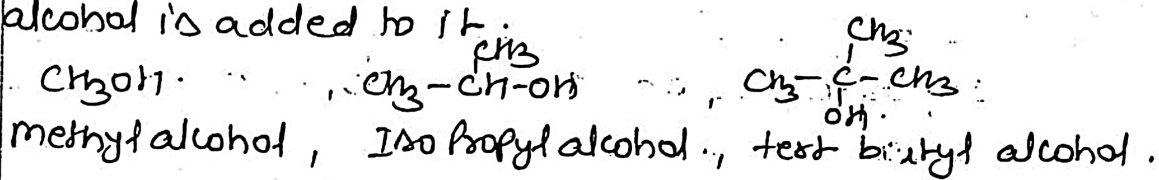 alcohol is added to it.
CH3 CH3
CH3OH. , CH3-CH-OH , CH3-C-CH3
OH.
methyl alcohol, Iso Propyl alcohol., tert butyl alcohol.